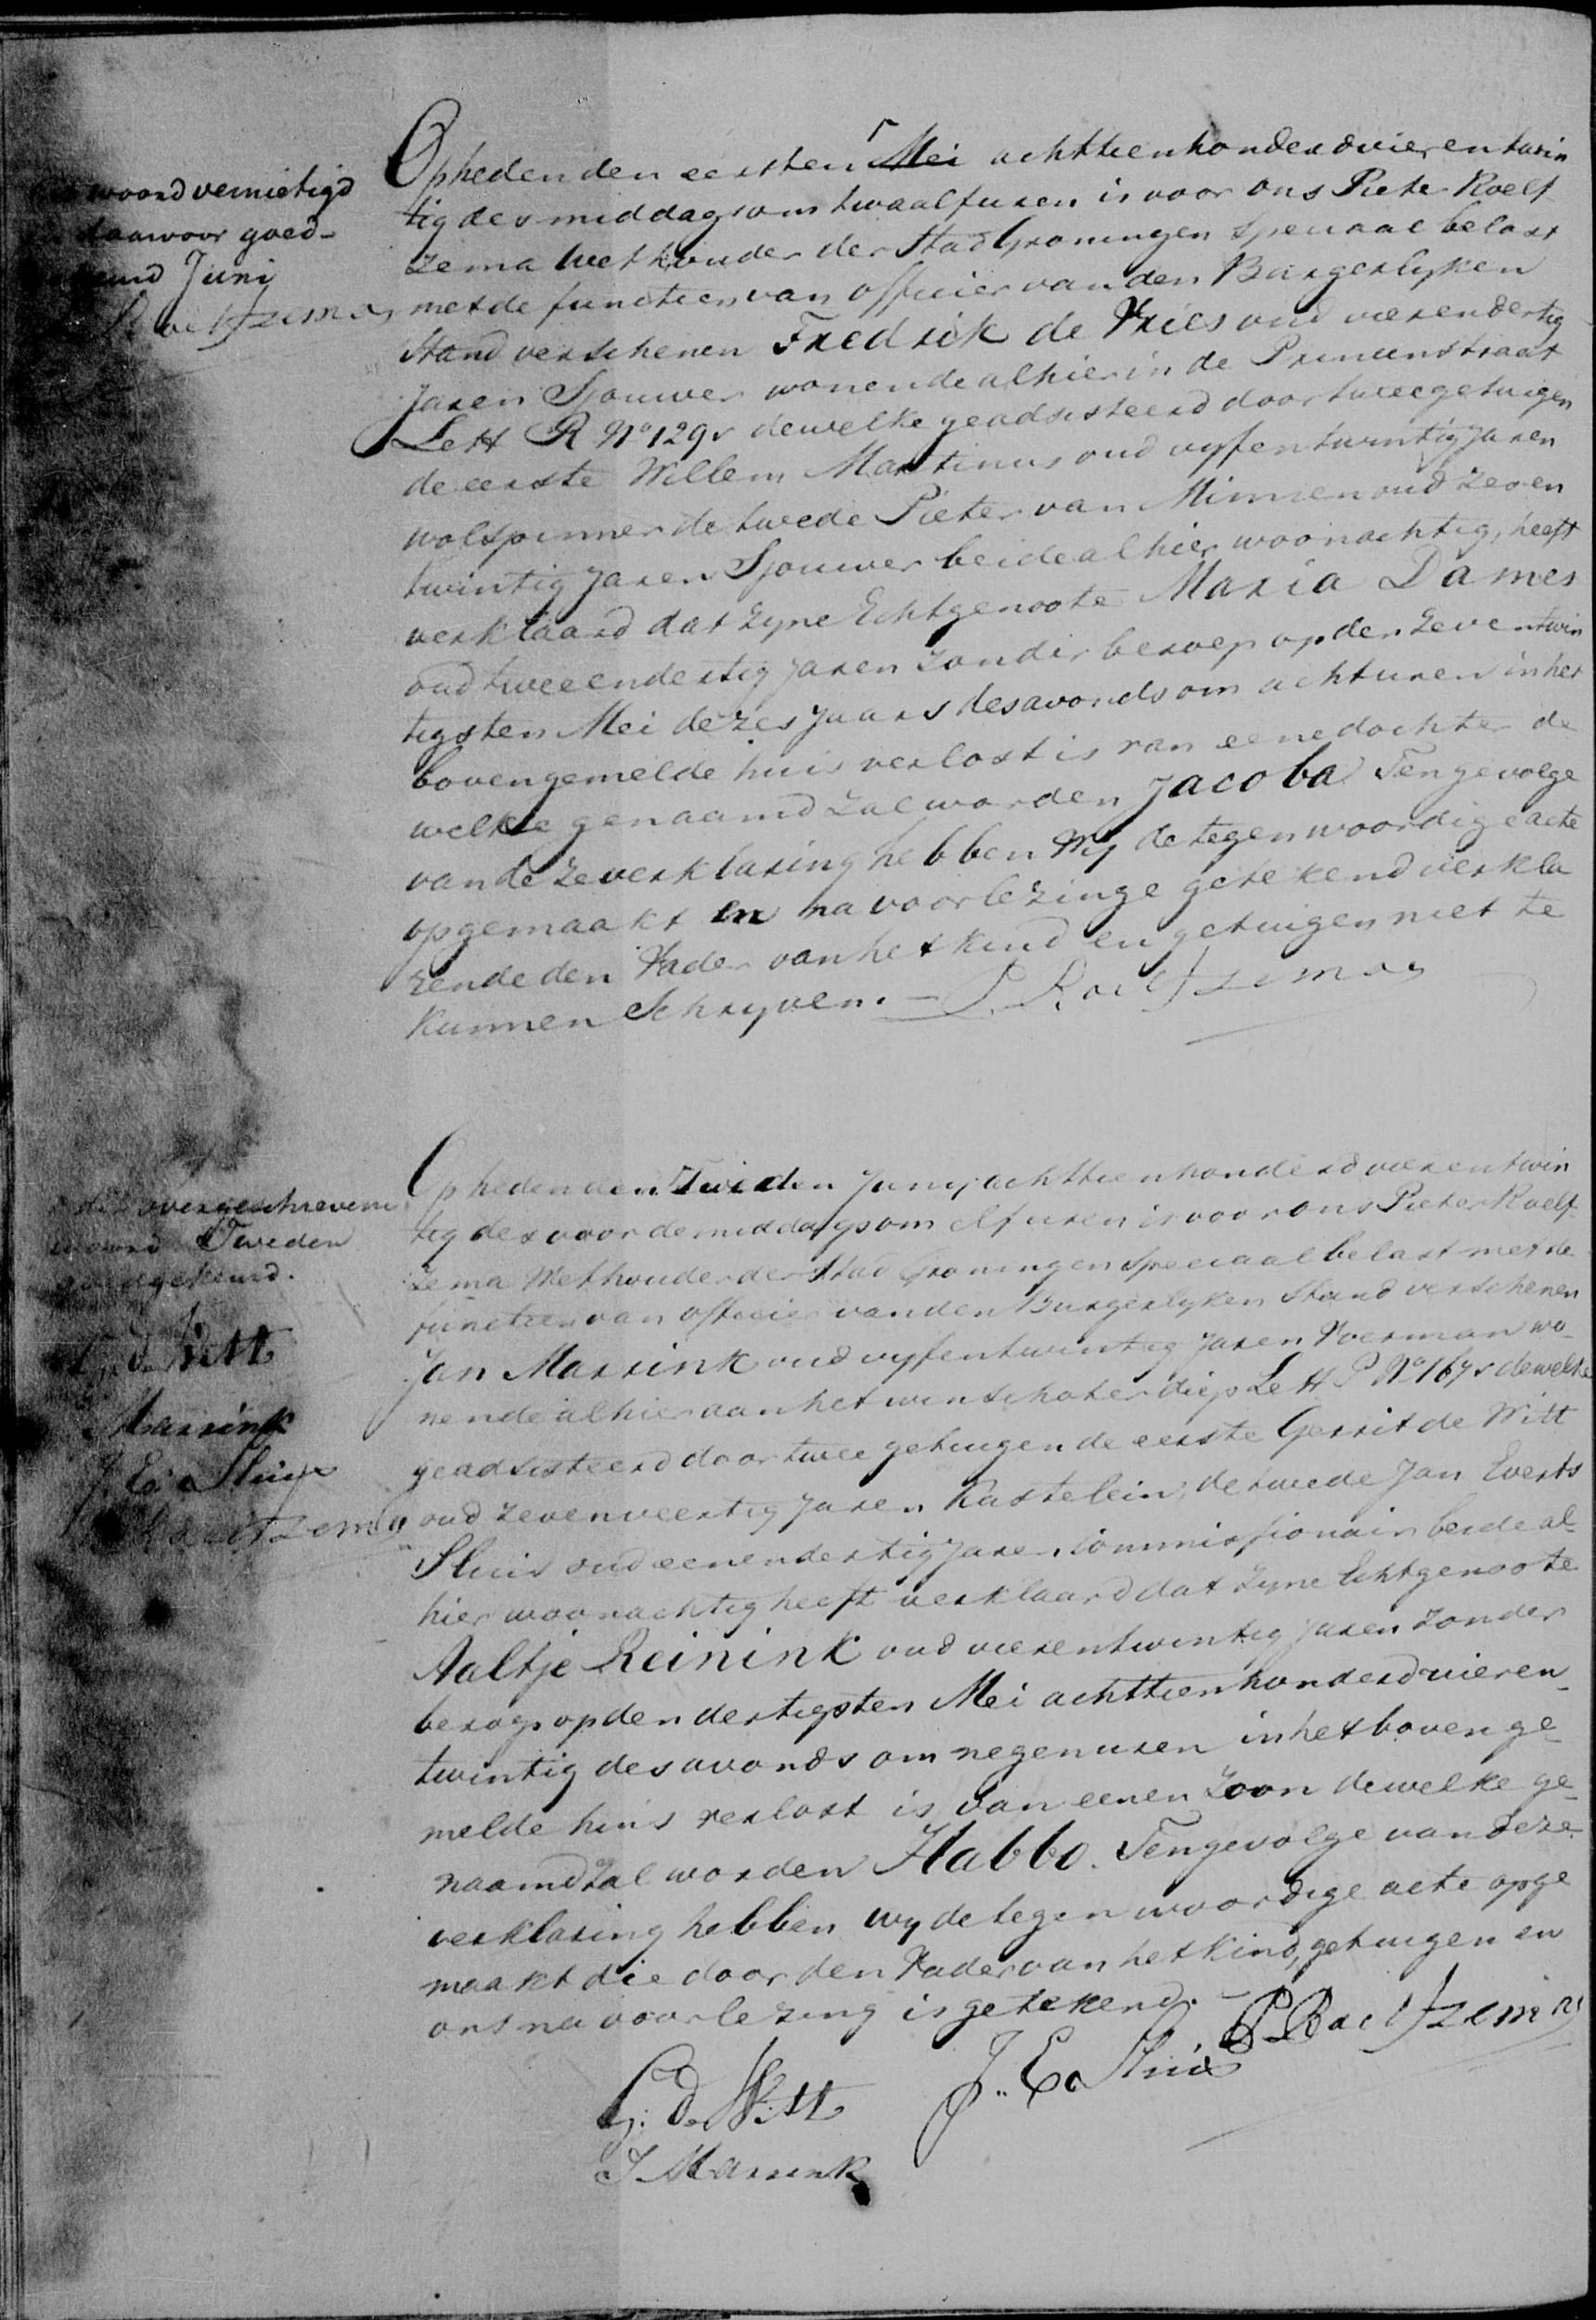 woord vernietigd
daarvoor goed-
Juny
Roelfzema
Opheden den eersten Mei achttienhonderdvierentwin
tig des middags om twaalf uren is voor ons Pieter Roelf
zema Wethouder der Stad Groningen speciaal belast
met de functien van officier van den Burgerlyken
Stand verschenen Fredrik de Vries oud vierendertig
jaren Sjouwer wonende alhier in de Princenstraat
Lett R No 129 dewelke geadsisteerd door twee getuigen
de eerste Willem Martinus oud vyfentwintig jaren
wolspinner de twede Pieter van Minnen oud zeven
twintig jaren Sjouwer beide alhier woonachtig, heeft
verklaard dat zyne Echtgenoote Maria Dames
oud tweeendertig jaren zonder beroep op den zeventwin
tigsten Mei dezes jaars des avonds om acht uren in het
bovengemelde huis verlost is van eene dochter de
welke genaamd zal worden Jacoba Tengevolge
van deze verklaring hebben Wy de tegenwoordige acte
opgemaakt en na voorlezinge getekend verkla
rende den Vader van het kind en getuigen niet te
kunnen Schryven. — P. Roelfzema
overgeschreven
woord Tweden
goedgekeurd.
G. d. Witt
Marrink
J. E. Sluis
Roelfzema
Op heden den Tweden Juny achttienhonderd vierentwin
tig des voordemiddags om elf uren is voor ons Pieter Roelf
zema Wethouder der Stad Groningen speciaal belast met de
functien van officier van den Burgerlyken Stand verschenen
Jan Marrink oud vyfentwintig jaren Voerman wo-
nende alhier aan het winschoter diep Lett P No 167 dewelke
geadsisteerd door twee getuigen de eerste Gerrit de Witt
oud zevenveertig jaren Kastelein, de twede Jan Everts
Sluis oud eenendertig jaren Commissionair beide al-
hier woonachtig heeft verklaard dat zyne Echtgenoote
Aaltje Reinink oud vierentwintig jaren zonder
beroep op den dertigsten Mei achttienhonderdvieren-
twintig des avonds om negen uren in het bovenge-
melde huis verlost is van eenen zoon dewelke ge-
naamd zal worden Habbo. Tengevolge van deze
verklaring hebben wy de tegenwoordige acte opge
maakt die door den Vader van het kind, getuigen en
ons na voorlezing is getekend. — P. Roelfzema
G. d. Witt J. E. Sluis
J Marrink